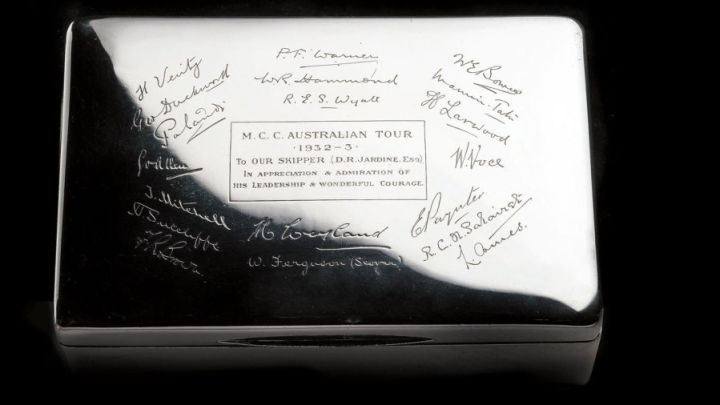 P.F. Warner
W.R. Hammond
R.E.S. Wyatt
H Verity
Geo Duckworth
Pataudi
G O Allen
T. Mitchell
H Sutcliffe
W E Bowes
Maurice Tate
H Larwood
W. Voce
M.C.C. AUSTRALIAN TOUR
· 1932-3 ·
TO OUR SKIPPER (D.R. JARDINE. ESQ)
IN APPRECIATION & ADMIRATION OF
HIS LEADERSHIP & WONDERFUL COURAGE.
E Paynter
L. Ames.
M Leyland
W. Ferguson (Scorer)